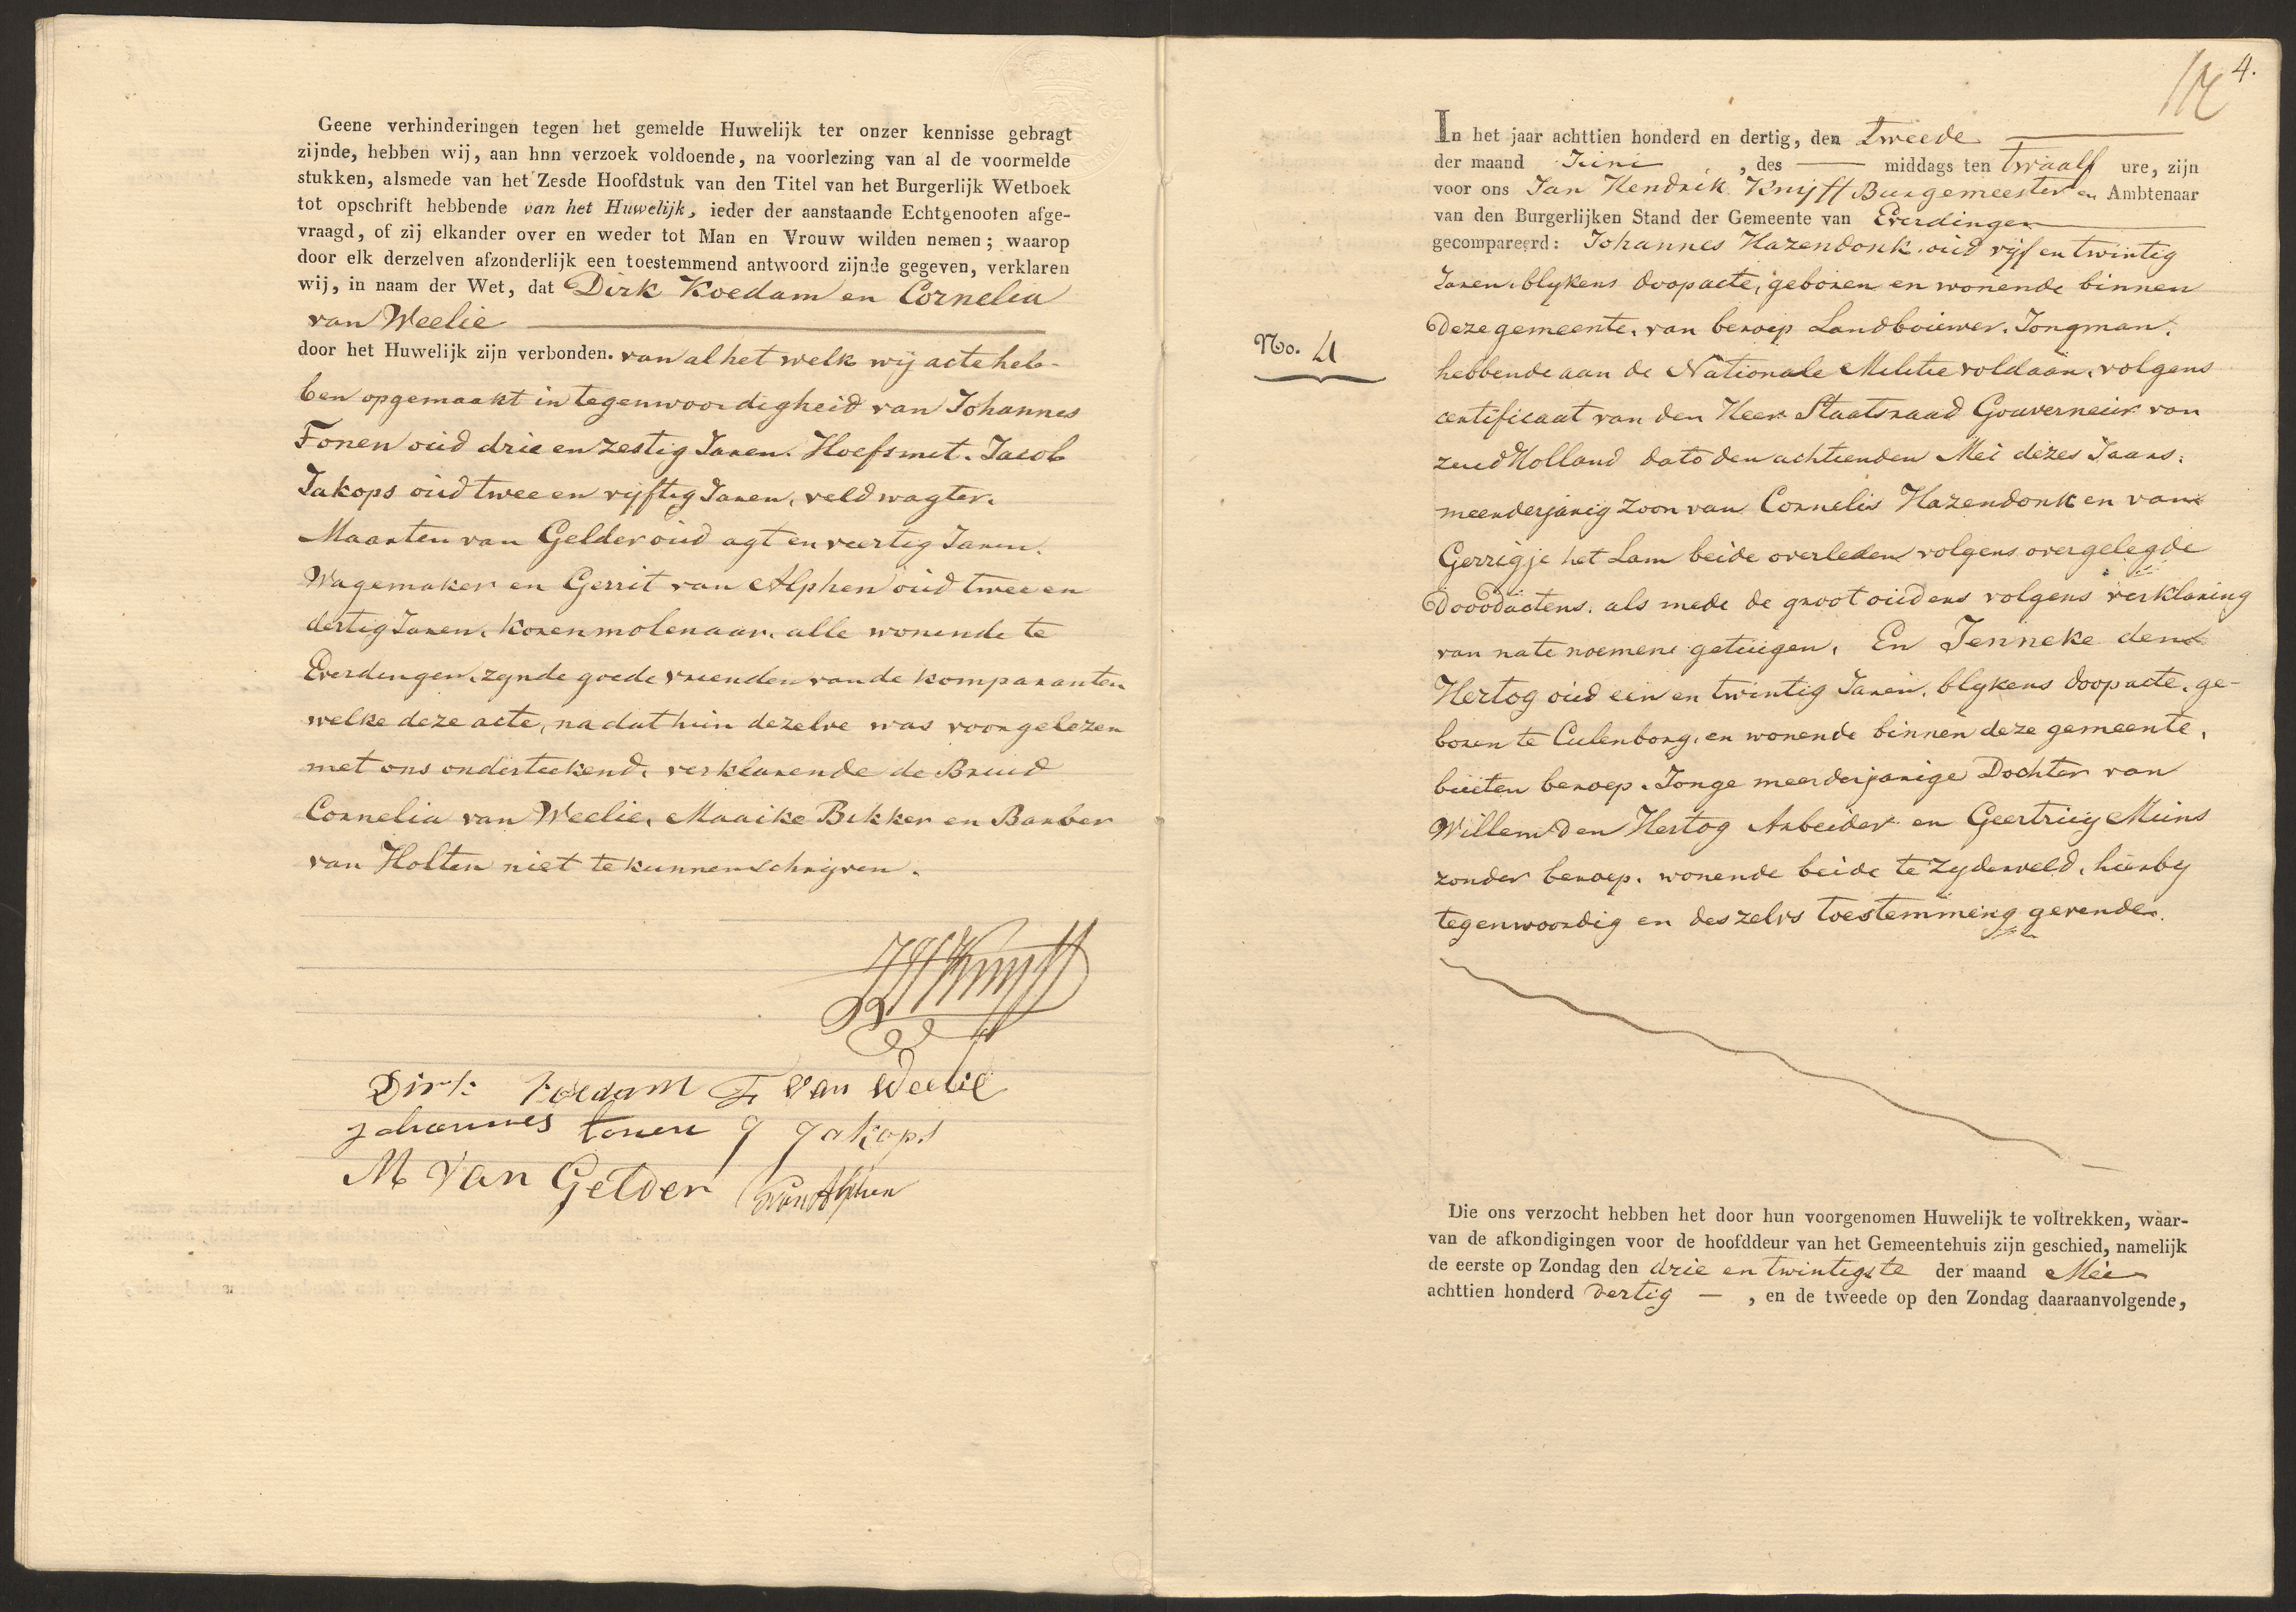 Geene verhinderingen tegen het gemelde Huwelijk ter onzer kennisse gebragt
zijnde, hebben wij, aan hnn verzoek voldoende, na voorlezing van al de voormelde
stukken, alsmede van het Zesde Hoofdstuk van den Titel van het Burgerlijk Wetboek
tot opschrift hebbende van het Huwelijk, ieder der aanstaande Echtgenooten afge-
vraagd, of zij elkander over en weder tot Man en Vrouw wilden nemen; waarop
door elk derzelven afzonderlijk een toestemmend antwoord zijnde gegeven, verklaren
wij, in naam der Wet, dat Dirk Koedam en Cornelia
van Weelie
door het Huwelijk zijn verbonden. van al het welk wij acte heb-
ben opgemaakt in tegenwoordigheid van Johannes
Tonen oud drie en zestig Jaren. Hoefsmet. Jacob
Jakops oud twee en vyftig Jaren, veldwagter.
Maarten van Gelder oud agt en veertig Jaren.
Wagemaker en Gerrit van Alphen oud twee en
dertig Jaren. korenmolenaar. alle wonende te
Everdingen. zynde goede vrienden van de komparanten
welke deze acte, na dat hun dezelve was voorgelezen
met ons onderteekend. verklarende de Bruid
Cornelia van Weelie, Maaike Bekker en Barber
van Holten niet te kunnen schryven.
JHKnyff
Dirk koedam F van Weelie
Johannes tonen J Jakops
M van Gelder GvanAlphen
4.
In het jaar achttien honderd en dertig, den tweede
der maand Juni , des middags ten twaalf ure, zijn
voor ons Jan Hendrik Knijff Burgemeester en Ambtenaar
van den Burgerlijken Stand der Gemeente van Everdingen
gecompareerd: Johannes Hazendonk. oud vijf en twintig
Jaren. blykens doopacte, geboren en wonende binnen
deze gemeente. van beroep Landbouwer. Jongman.
No. 4
hebbende aan de Nationale Militie voldaan. volgens
certificaat van den Heer Staatsraad Gouverneur van
zuid Holland dato den achtienden Mei dezes Jaars.
meerderjarig zoon van Cornelis Hazendonk en van
Gerrigje het Lam beide overleden volgens overgelegde
Dooodactens. als mede de groot ouders volgens verklaring
van na te noemene getuigen. En Jenneke den
Hertog oud een en twintig Jaren. blykens doopacte. ge-
boren te Culenborg. en wonende binnen deze gemeente.
buiten beroep. Jonge meerderjarige Dochter van
Willem den Hertog Arbeider en Geertruy Muns
zonder beroep. wonende beide te zyderveld. hierby
tegenwoordig en deszelvs toestemming gevende.
Die ons verzocht hebben het door hun voorgenomen Huwelijk te voltrekken, waar-
van de afkondigingen voor de hoofddeur van het Gemeentehuis zijn geschied, namelijk
de eerste op Zondag den drie en twintigste der maand Mei
achttien honderd dertig — , en de tweede op den Zondag daaraanvolgende,